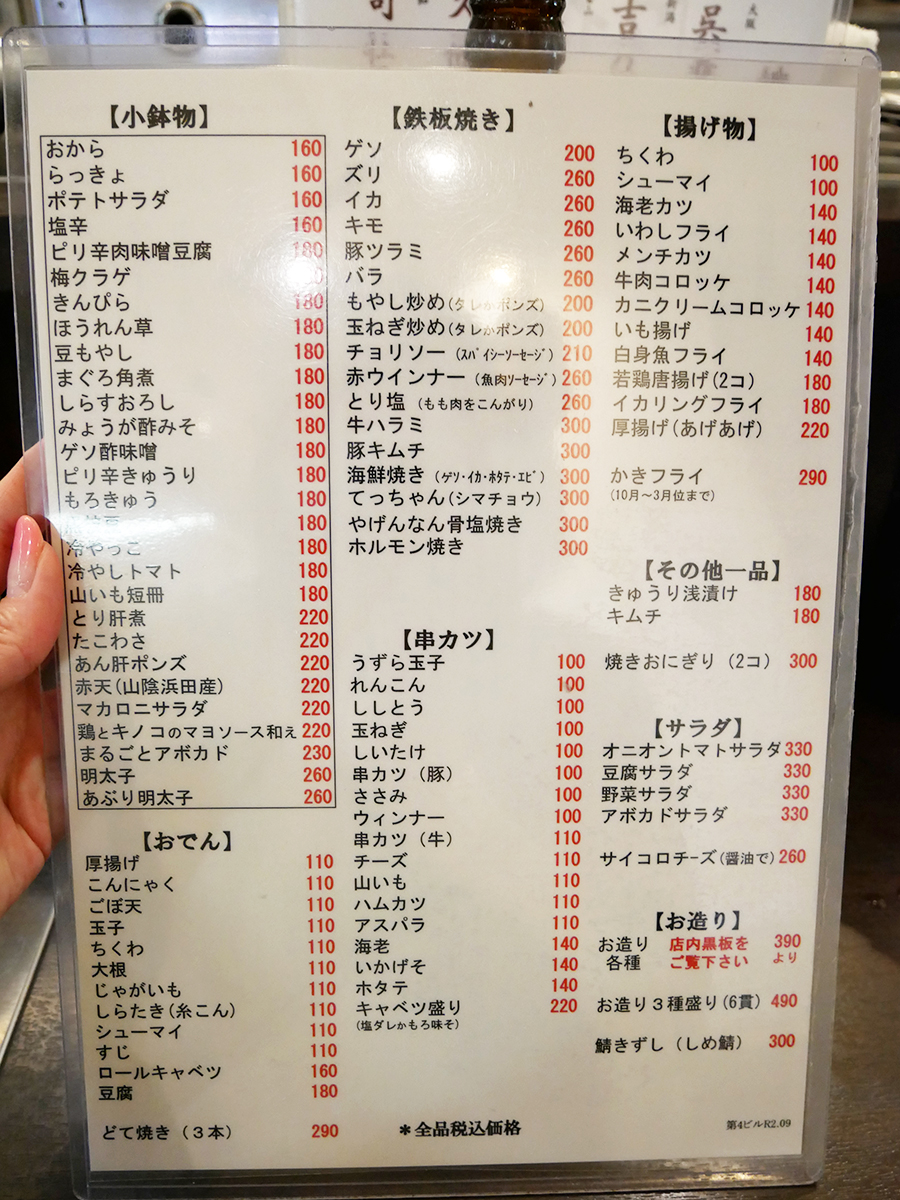 【小鉢物】
おから 160
らっきょ 160
ポテトサラダ 160
塩辛 160
ピリ辛肉味噌豆腐 180
梅クラゲ
きんぴら 180
ほうれん草 180
豆もやし 180
まぐろ角煮 180
しらすおろし 180
みょうが酢みそ 180
ゲソ酢味噌 180
ピリ辛きゅうり 180
もろきゅう 180
180
冷やっこ 180
冷やしトマト 180
山いも短冊 180
とり肝煮 220
たこわさ 220
あん肝ポンズ 220
赤天(山陰浜田産) 220
マカロニサラダ 220
鶏とキノコのマヨソース和え 220
まるごとアボカド 230
明太子 260
あぶり明太子 260
【おでん】
厚揚げ 110
こんにゃく 110
ごぼ天 110
玉子 110
ちくわ 110
大根 110
じゃがいも 110
しらたき(糸こん) 110
シューマイ 110
すじ 110
ロールキャベツ 160
豆腐 180
どて焼き(3本) 290
【鉄板焼き】
ゲソ 200
ズリ 260
イカ 260
キモ 260
豚ツラミ 260
バラ 260
もやし炒め(タレかポンズ) 200
玉ねぎ炒め(タレかポンズ) 200
チョリソー (スパイシーソーセージ) 210
赤ウインナー (魚肉ソーセージ) 260
とり塩 (もも肉をこんがり) 260
牛ハラミ 300
豚キムチ 300
海鮮焼き (ゲソ・イカ・ホタテ・エビ) 300
てっちゃん(シマチョウ) 300
やげんなん骨塩焼き 300
ホルモン焼き 300
【串カツ】
うずら玉子 100
れんこん 100
ししとう 100
玉ねぎ 100
しいたけ 100
串カツ(豚) 100
ささみ 100
ウィンナー 100
串カツ(牛) 110
チーズ 110
山いも 110
ハムカツ 110
アスパラ 110
海老 140
いかげそ 140
ホタテ 140
キャベツ盛り 220
(塩ダレかもろ味そ)
*全品税込価格
【揚げ物】
ちくわ 100
シューマイ 100
海老カツ 140
いわしフライ 140
メンチカツ 140
牛肉コロッケ 140
カニクリームコロッケ 140
いも揚げ 140
白身魚フライ 140
若鶏唐揚げ(2コ) 180
イカリングフライ 180
厚揚げ(あげあげ) 220
かきフライ 290
(10月〜3月位まで)
【その他一品】
きゅうり浅漬け 180
キムチ 180
焼きおにぎり(2コ) 300
【サラダ】
オニオントマトサラダ 330
豆腐サラダ 330
野菜サラダ 330
アボカドサラダ 330
サイコロチーズ(醤油で) 260
【お造り】
お造り 店内黒板を 390
各種 ご覧下さい より
お造り3種盛り(6貫) 490
鯖きずし(しめ鯖) 300
第4ビルR2.09